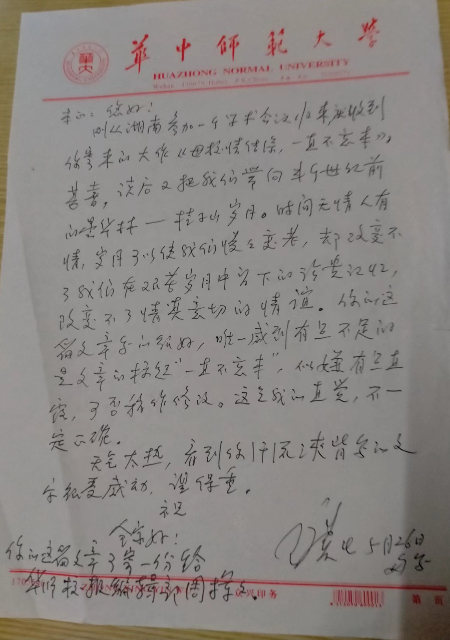 華中師範大學
HUAZHONG NORMAL UNIVERSITY
你好!
刚从湖南参加一个学术会议回来就收到
你寄来的大作《母校情结深,一直不忘本》,
甚喜。读后又把我们带回半个世纪前
的昙华林——桂子山岁月。时间无情人有
情,岁月可以使我们慢慢变老,却改变不
了我们在艰苦岁月中留下的珍贵记忆,
改变不了情真意切的情谊。你的这
篇文章写的很好,唯一感到有点不足的
是文章的标题"一直不忘本",似嫌有点直
露,可否稍作修改。这是我的直觉,不一
定正确。
天气太热,看到你汗流浃背写的文
字很受感动,望保重。
祝
全家好!
5月26日
你的这篇文章可寄一份给
华师校报编辑部
第 页